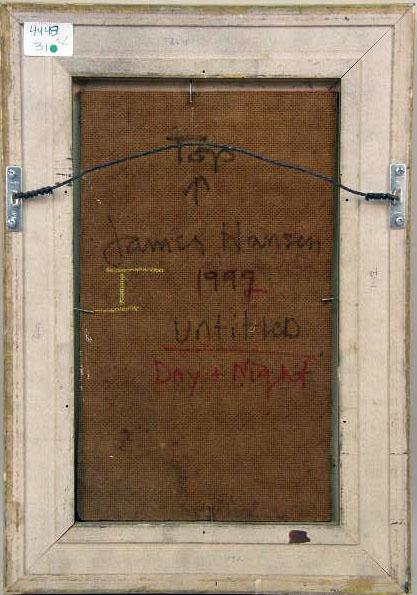 4448
31
Top
James Hansen
1992
Untitled
Day + Night